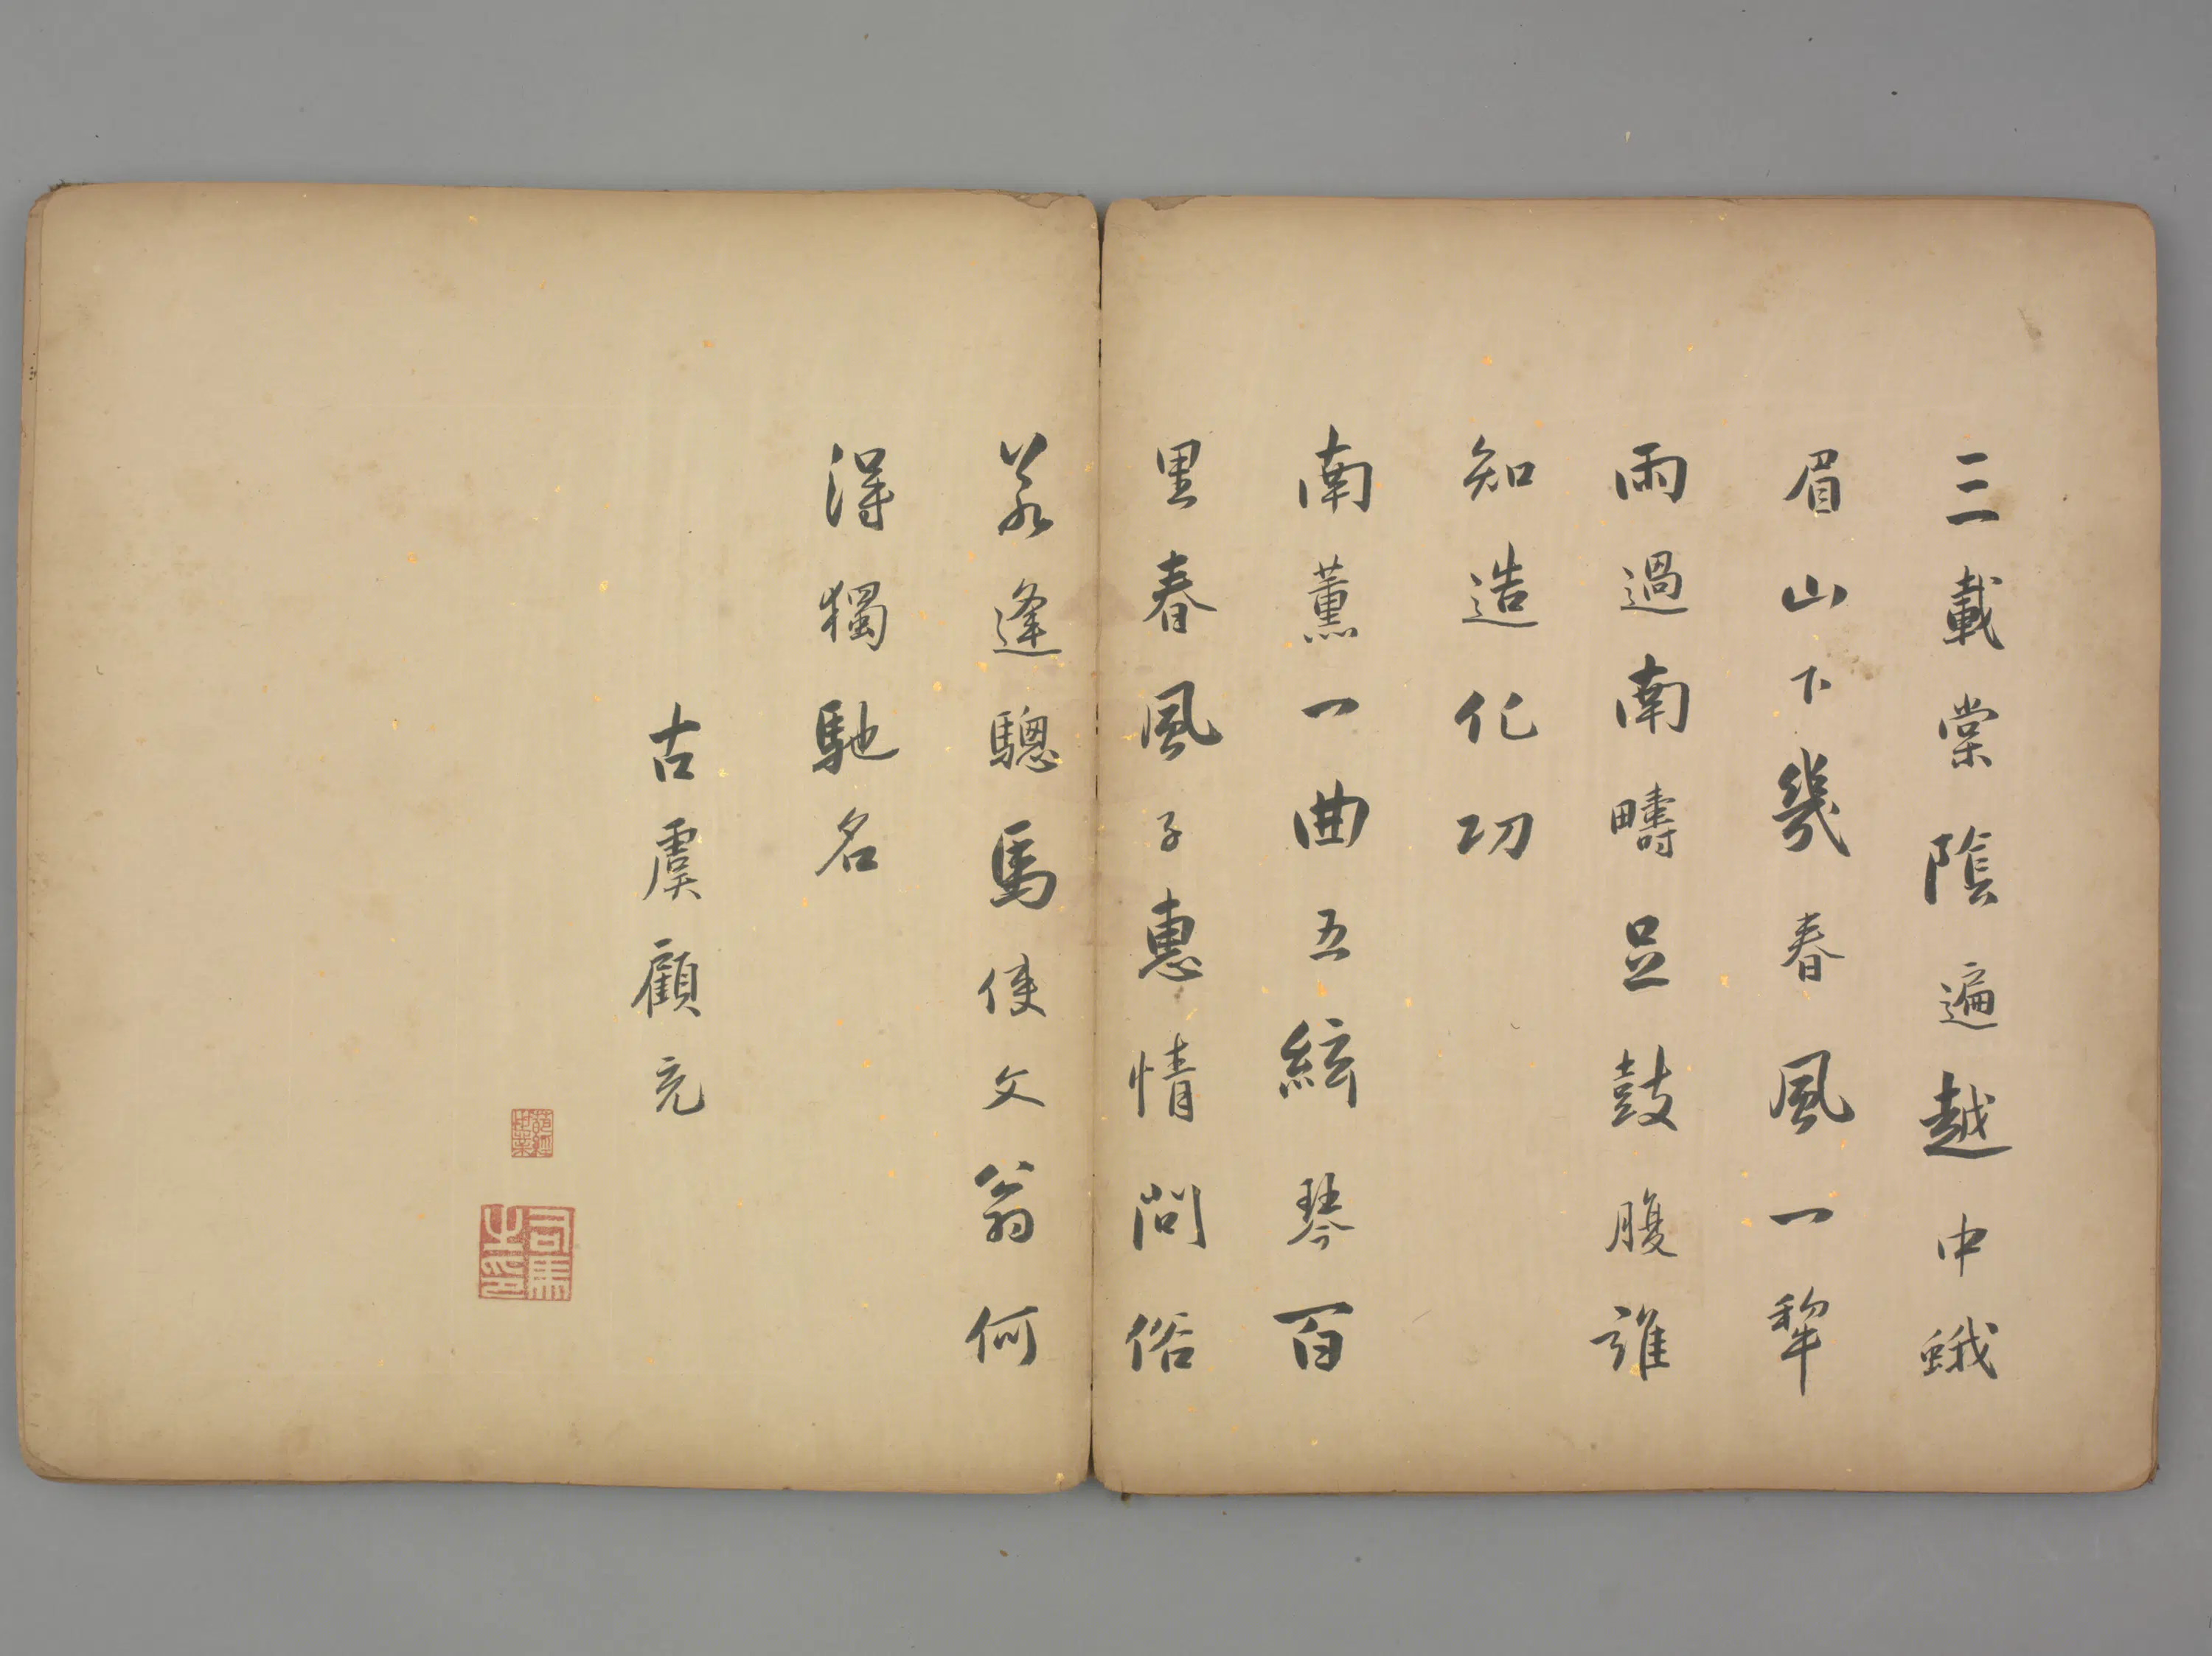 三載棠陰遍越中蛾
眉山下幾春風一犂
雨過南疇足鼓腹誰
知造化功
南薰一曲五絃琴百
里春風子惠情問俗
若逢驄馬使文翁何
得獨馳名
古虞顧充
司馬之印